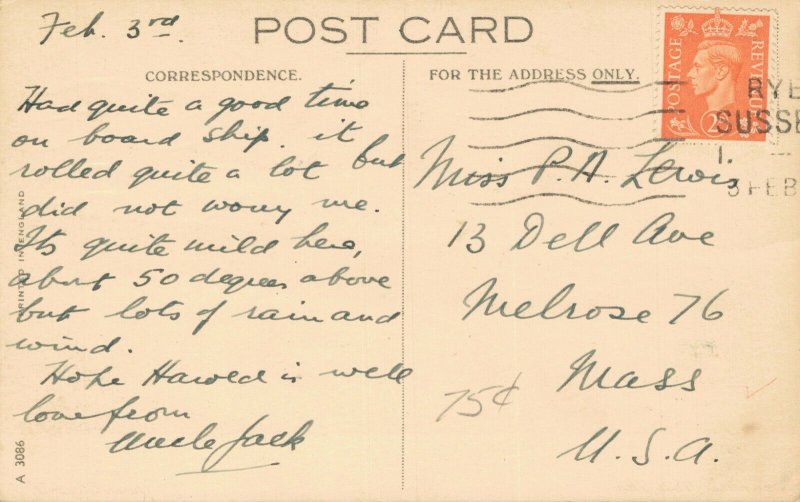 Feb. 3rd.
POST CARD
CORRESPONDENCE.
FOR THE ADDRESS ONLY.
Had quite a good time
on board ship. it
rolled quite a lot but
did not worry me.
Its quite mild here,
about 50 degrees above
but lots of rain and
wind.
Hope Harold is well
love from
Uncle Jack
PRINTED IN ENGLAND
A 3086
POSTAGE
REVENUE
RYE
SUSSE
3 FEB
Miss P. A. Lewis
13 Dell Ave
Melrose 76
Mass
U.S.A.
75¢